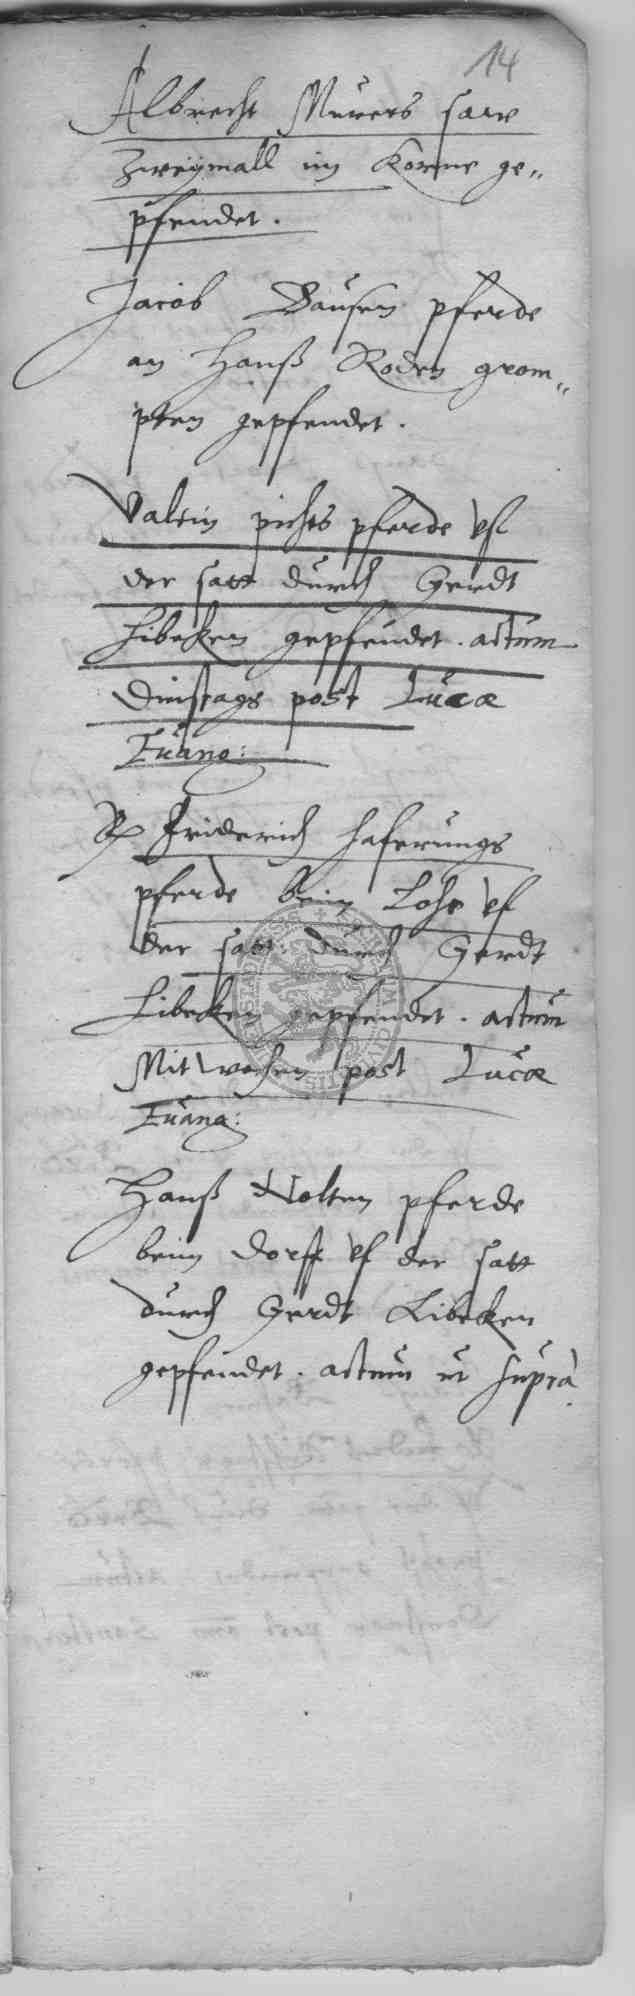 14
Albrecht Mürers saw
Zweÿmall im Korne ge-
pfendet.
Jacob Bausen pferde
an Hanß Roden grom-
pten gepfendet.
Valtin pichts pferde vf
der satt durch Gerdt
Libeken gepfendet. actum
Dinstags post Lucæ
Euang:
Friderich Haferungs
pferde beim Lohe vf
der satt durch Gerdt
Libeken gepfendet. actum
Mitwochen post Lucæ
Euang:
Hanß Nolten pferde
beim Dorff vf der satt
durch Gerdt Libeken
gepfendet. actum ut supra